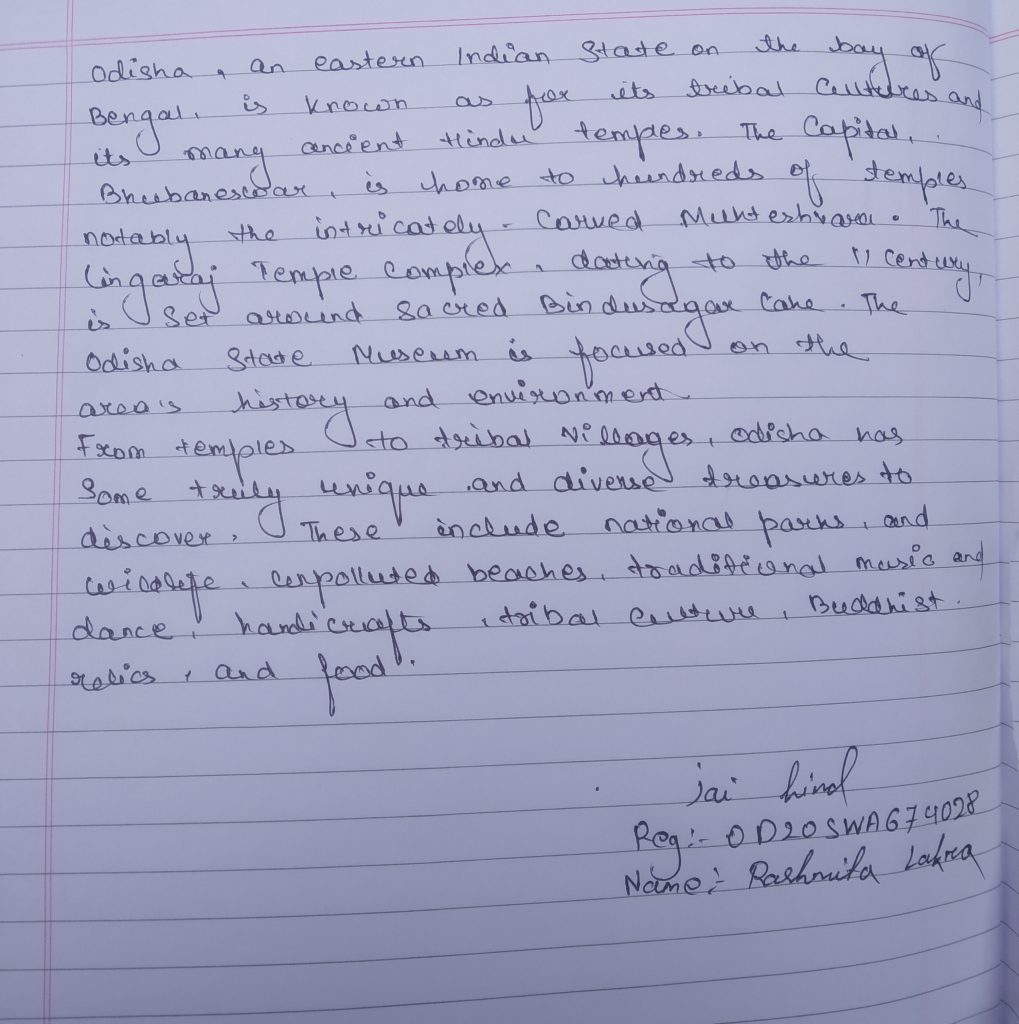 Odisha, an eastern Indian State on the bay of
Bengal, is known as for its tribal Cultures and
its many ancient Hindu tempes. The Capital,
Bhubaneswar, is home to hundreds of temples
notably the intricately - Carved Mukteshvara. The
Lingaraj Temple Complex, dating to the 11 Century,
is Set around Sacred Bindusagar Lake. The
Odisha State Museum is focused on the
area's history and environment
From temples to tribal Villages, Odisha has
Some truly unique and diverse treasures to
discover. These include national parks, and
wildlife, unpolluted beaches, traditional music and
dance, handicrafts, tribal Culture, Buddhist
relics, and food.
Jai hind
Reg:- OD20SWA674028
Name:- Rashmita Lakra